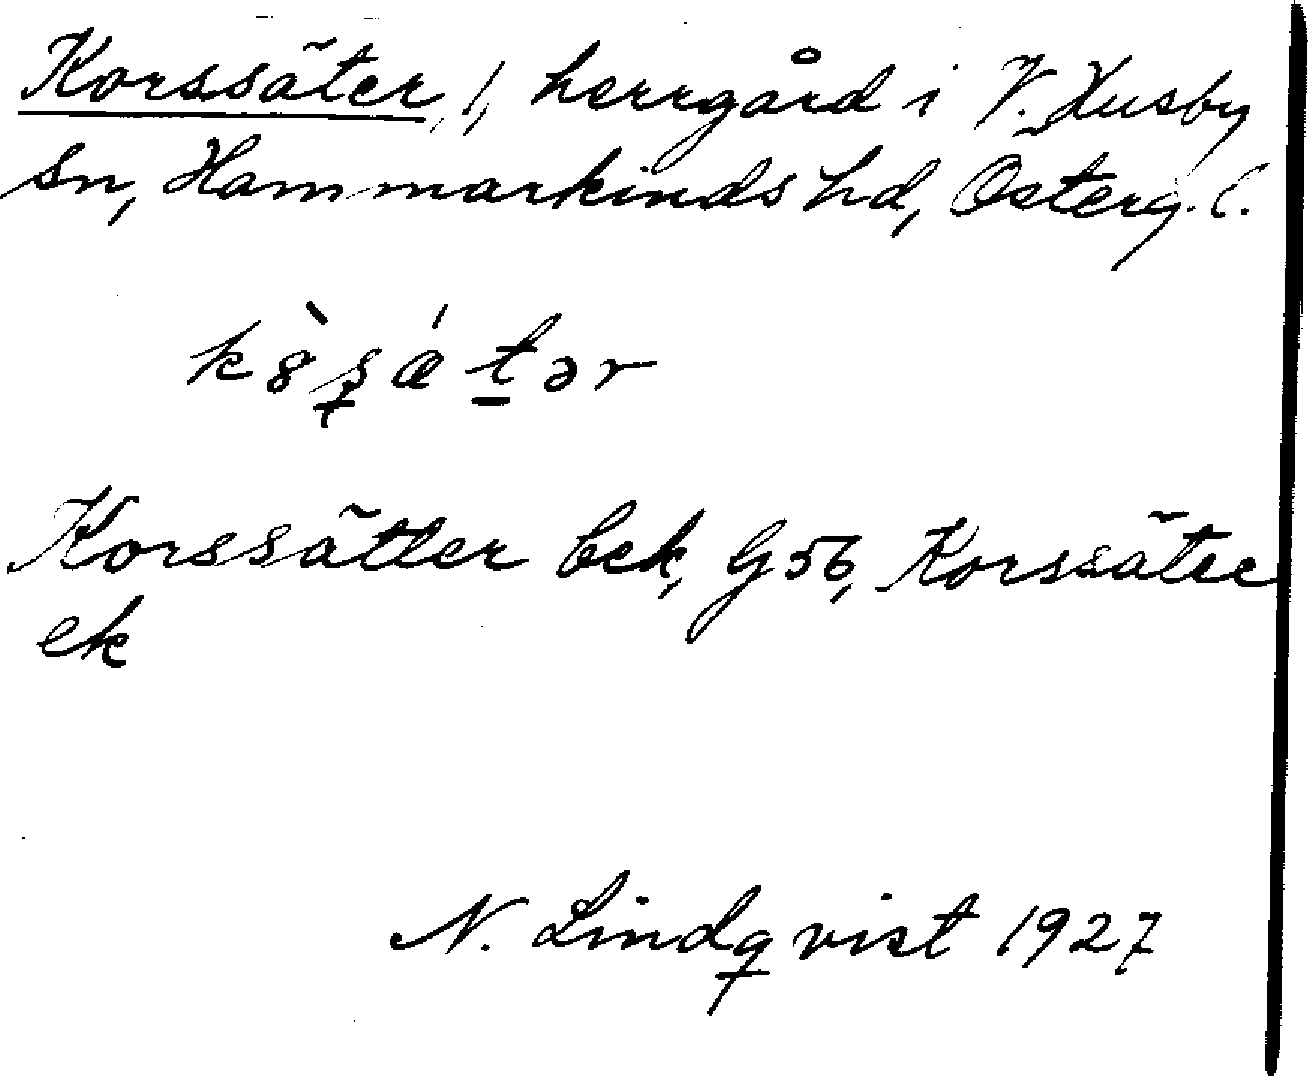 Korssäter, 1, herrgård i V. Husby
sn, Hammarkinds hd, Österg. l.
kȣ̀ʂǽtər
Korssätter bek, G 56, Korssäter
ek
N. Lindqvist 1927